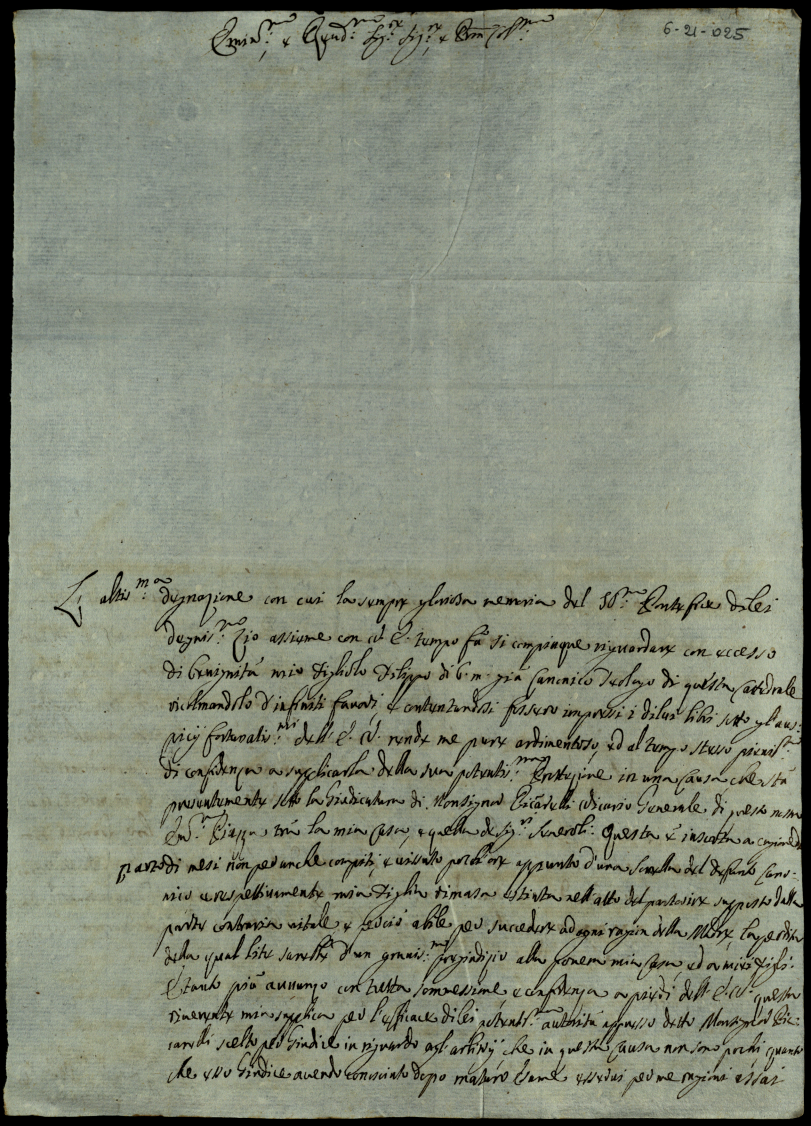 Emin.mo e Rnd.mo Sig.re Sig.re e Pron Coll.mo
6-21-025
L' altis.ma degnazione con cui la sempre gloriosa memoria del SS.mo Pontefice di lei
degnis.mo Zio assieme con V. E. tempo fà si compiaque riguardare con eccesso
di benignità mio Figliolo Filippo di b. m. già Canonico Teologo di questa Catedrale
ricolmandolo d'infiniti favori, e contentandosi fossero impressi i di lui libri sotto gl'aus:
picij fortunatis.mi dell' E. V. rende me pure ardimentoso, ed al tempo stesso pienis.mo
di confidenza a supplicarla della sua potentis.ma Protezione in una Causa che stà
presentemente sotto la Giudicatura di Monsignor Vicario Generale di questo nostro
Em.mo Piazza trà la mia Casa, e quella de Sig.ri Severoli: Questa è insorta a cagione d'un
parto di mesi non per anche compiti, e vissuto poch'ore appunto d'una Sorella del defunto Cano:
nico e respettivamente mia Figlia rimasa estinta nell'atto del partorire supposto dalla
parte contraria vitale e perciò abile per succedere ad ogni ragion della Madre. La perdita
della qual lite sarebbe d'un gravis.mo pregiudizio alla povera mia Casa, ed a miei Figli.
E tanto più avanzo con tutta sommessione e confidenza a piedi dell' E. V. questa
riverente mia supplica per l'efficace di lei potentis.ma autorità appresso detto Monsignor Ric:
carelli scelto per Giudice in riguardo agl'arbitrij che in questa Causa non sono pochi quanto
che esso Giudice avendo conosciuto dopo maturo esame esservi per me ragioni assai